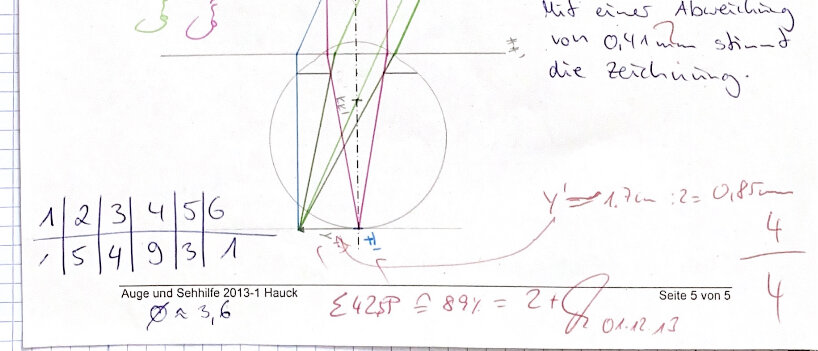 Mit einer Abweichung
von 0,41mm stimmt
die Zeichnung.
KK'
y' = 1.7cm :2 = 0,85mm
4
4
1 2 3 4 5 6
5 4 9 3 1
Auge und Sehhilfe 2013-1 Hauck
Seite 5 von 5
Ø ≈ 3,6
Σ 42,5P ≙ 89% = 2+
01.12.13